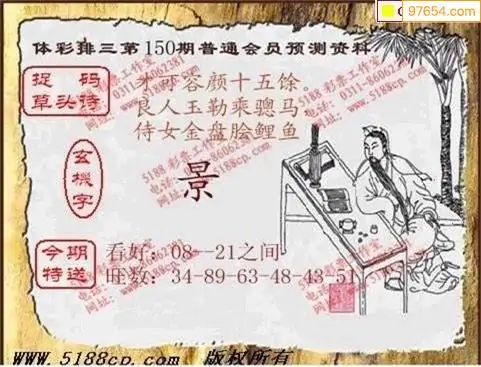 97654.com
体彩排三第150期普通会员预测资料
捉 码
草头诗
才可容颜十五馀。
良人玉勒乘骢马
侍女金盘脍鲤鱼
玄機字
景
今期
特送
看好：08--21之间
旺数：34-89-63-48-43 51
5188 彩票工作室
电话: 0311-86062381
网址: www.5188cp.com
www.5188cp.com 版权所有